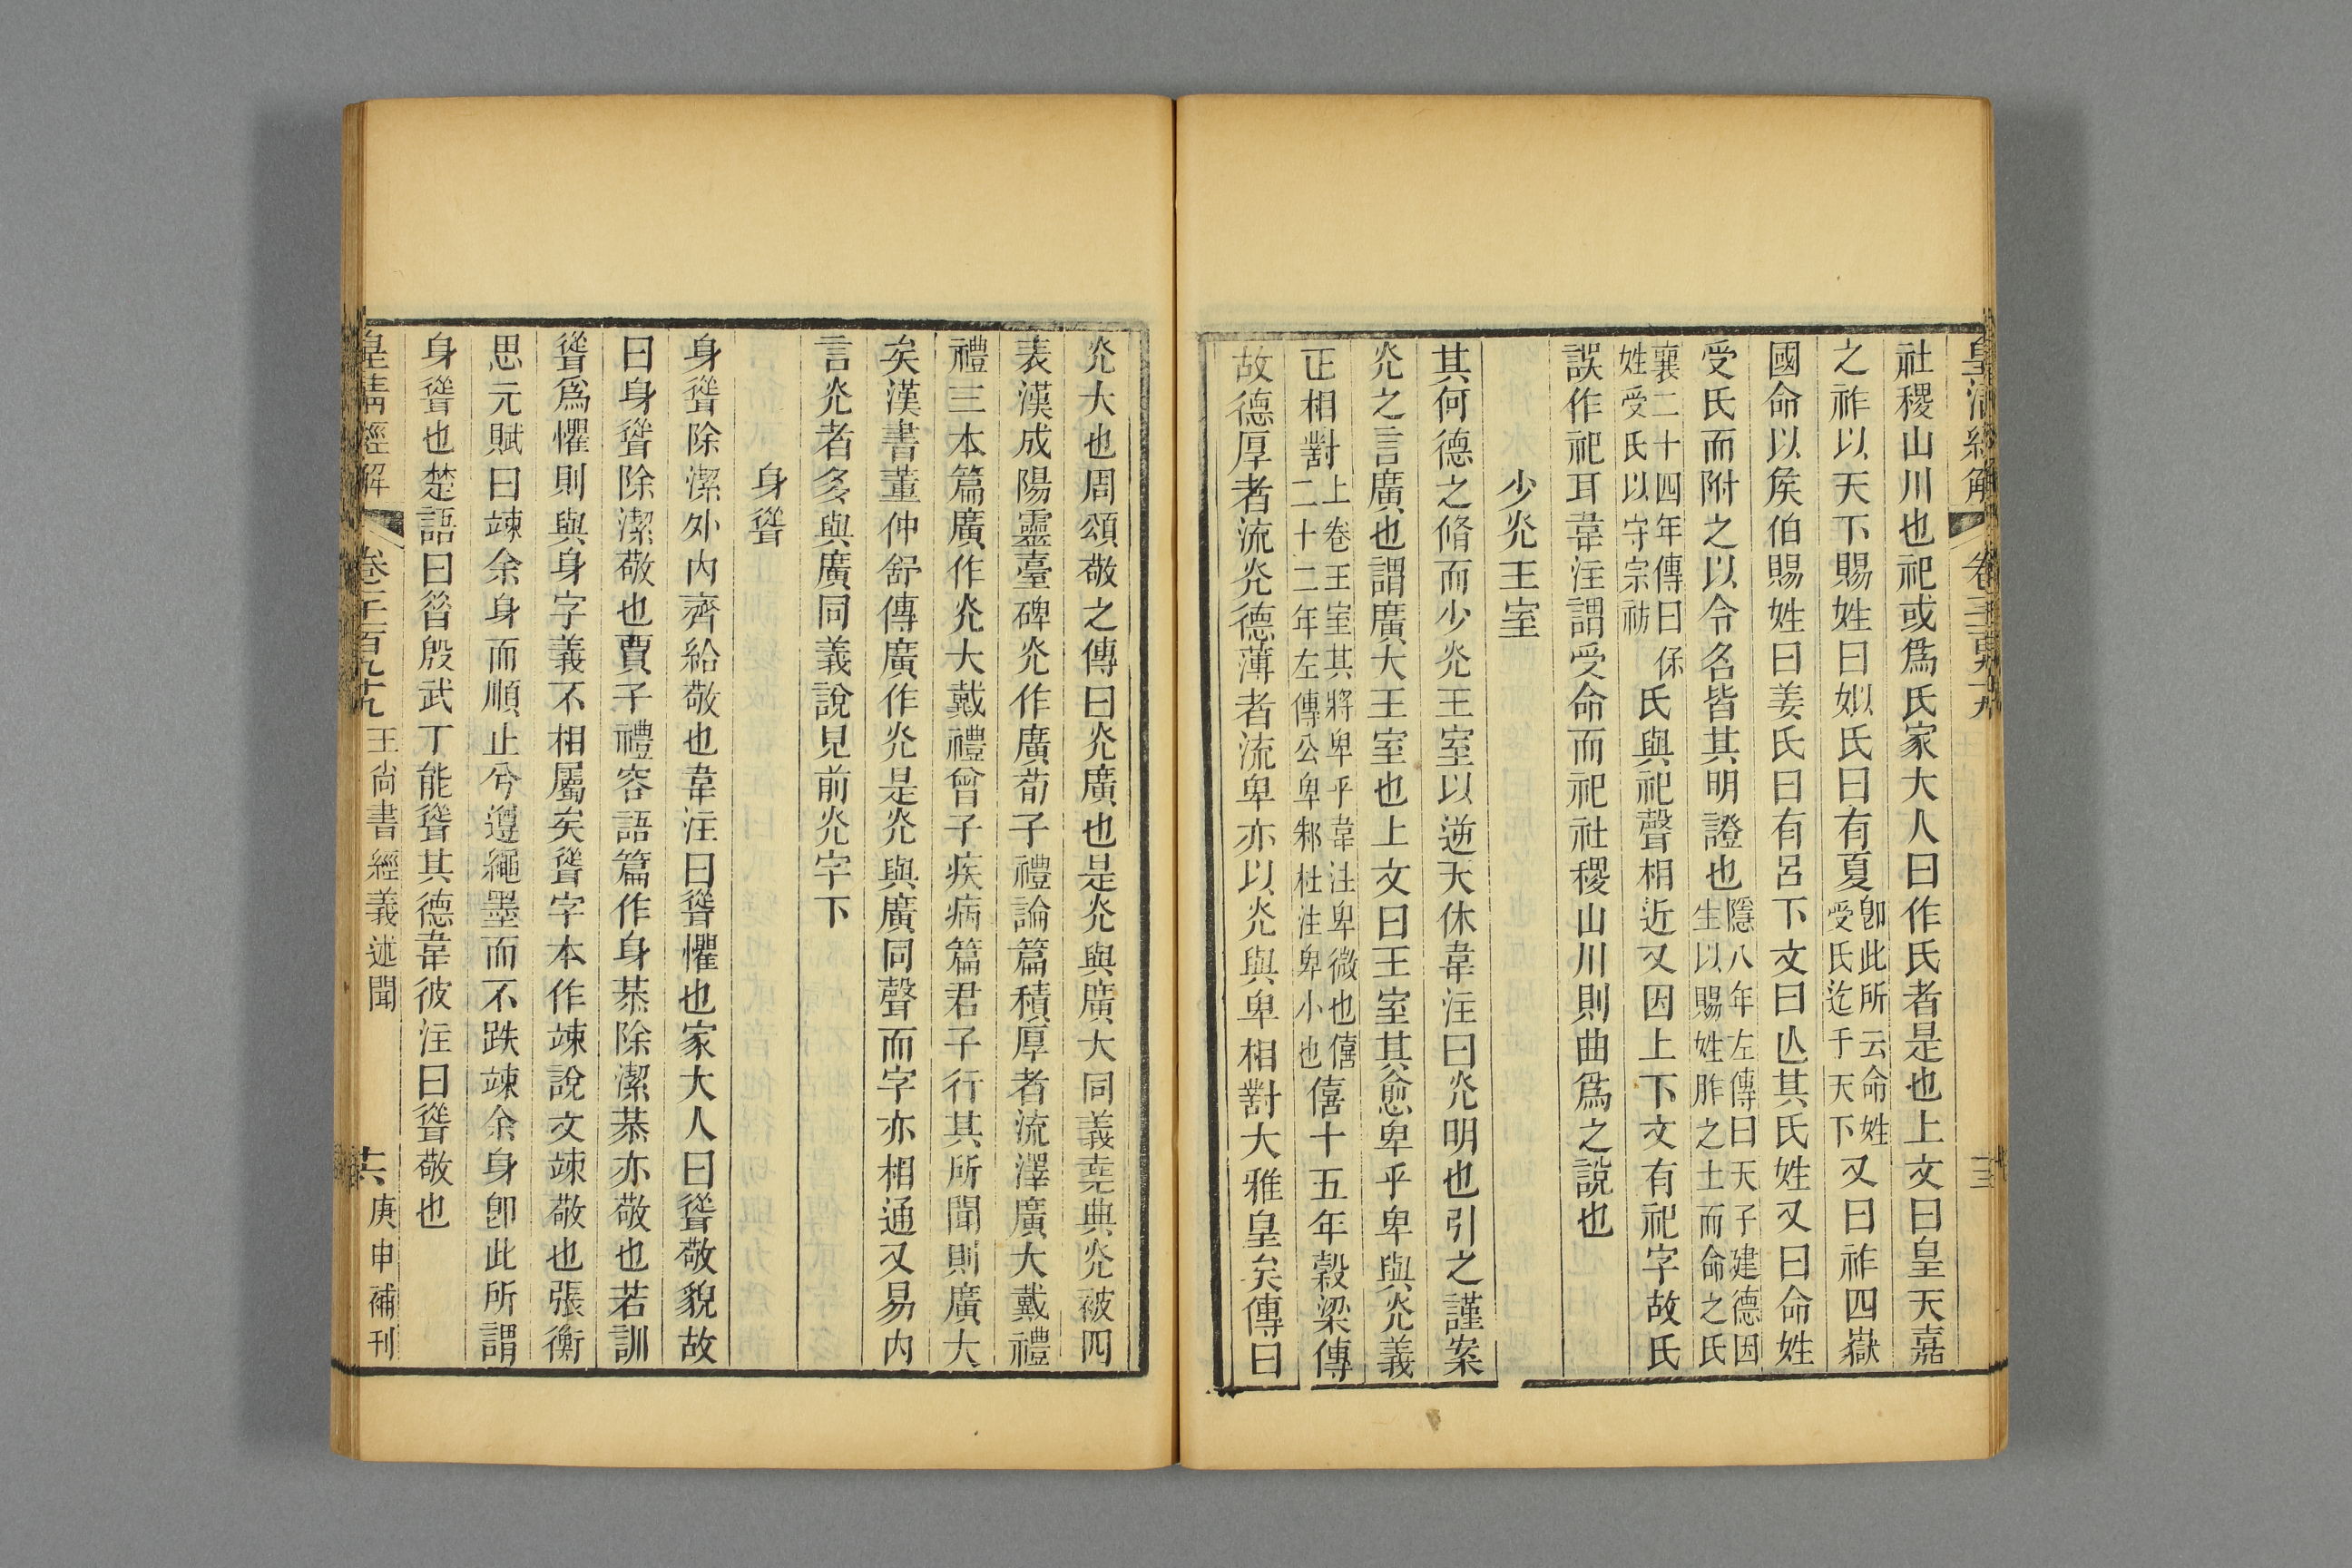 社稷山川也祀或爲氏家大人曰作氏者是也上文曰皇天嘉
之祚以天下賜姓曰姒氏曰有夏卽此所云命姓受氏迄于天下又曰祚四嶽
國命以矦伯賜姓曰姜氏曰有呂下文曰亾其氏姓又曰命姓
受氏而附之以令名皆其明證也隱八年左傳曰天子建德因生以賜姓胙之土而命之氏
襄二十四年傳曰保姓受氏以守宗祊氏與祀聲相近又因上下文有祀字故氏
誤作祀耳韋注謂受命而祀社稷山川則曲爲之說也
少灮王室
其何德之脩而少灮王室以逆天休韋注曰灮明也引之謹案
灮之言廣也謂廣大王室也上文曰王室其愈卑乎卑與灮義
正相對上卷王室其將卑乎韋注卑微也僖二十二年左傳公卑邾杜注卑小也僖十五年穀梁傳
故德厚者流灮德薄者流卑亦以灮與卑相對大雅皇矣傳曰
灮大也周頌敬之傳曰灮廣也是灮與廣大同義堯典灮被四
表漢成陽靈臺碑灮作廣荀子禮論篇積厚者流澤廣大戴禮
禮三本篇廣作灮大戴禮曾子疾病篇君子行其所聞則廣大
矣漢書董仲舒傳廣作灮是灮與廣同聲而字亦相通又易內
言灮者多與廣同義說見前灮字下
身聳
身聳除潔外內齊給敬也韋注曰聳懼也家大人曰聳敬貌故
曰身聳除潔敬也賈子禮容語篇作身恭除潔恭亦敬也若訓
聳爲懼則與身字義不相屬矣聳字本作竦說文竦敬也張衡
思元賦曰竦余身而順止兮遵繩墨而不跌竦余身卽此所謂
身聳也楚語曰昝殷武丁能聳其德韋彼注曰聳敬也
皇淸經解 卷 王尙書經義述聞 庚申補刊